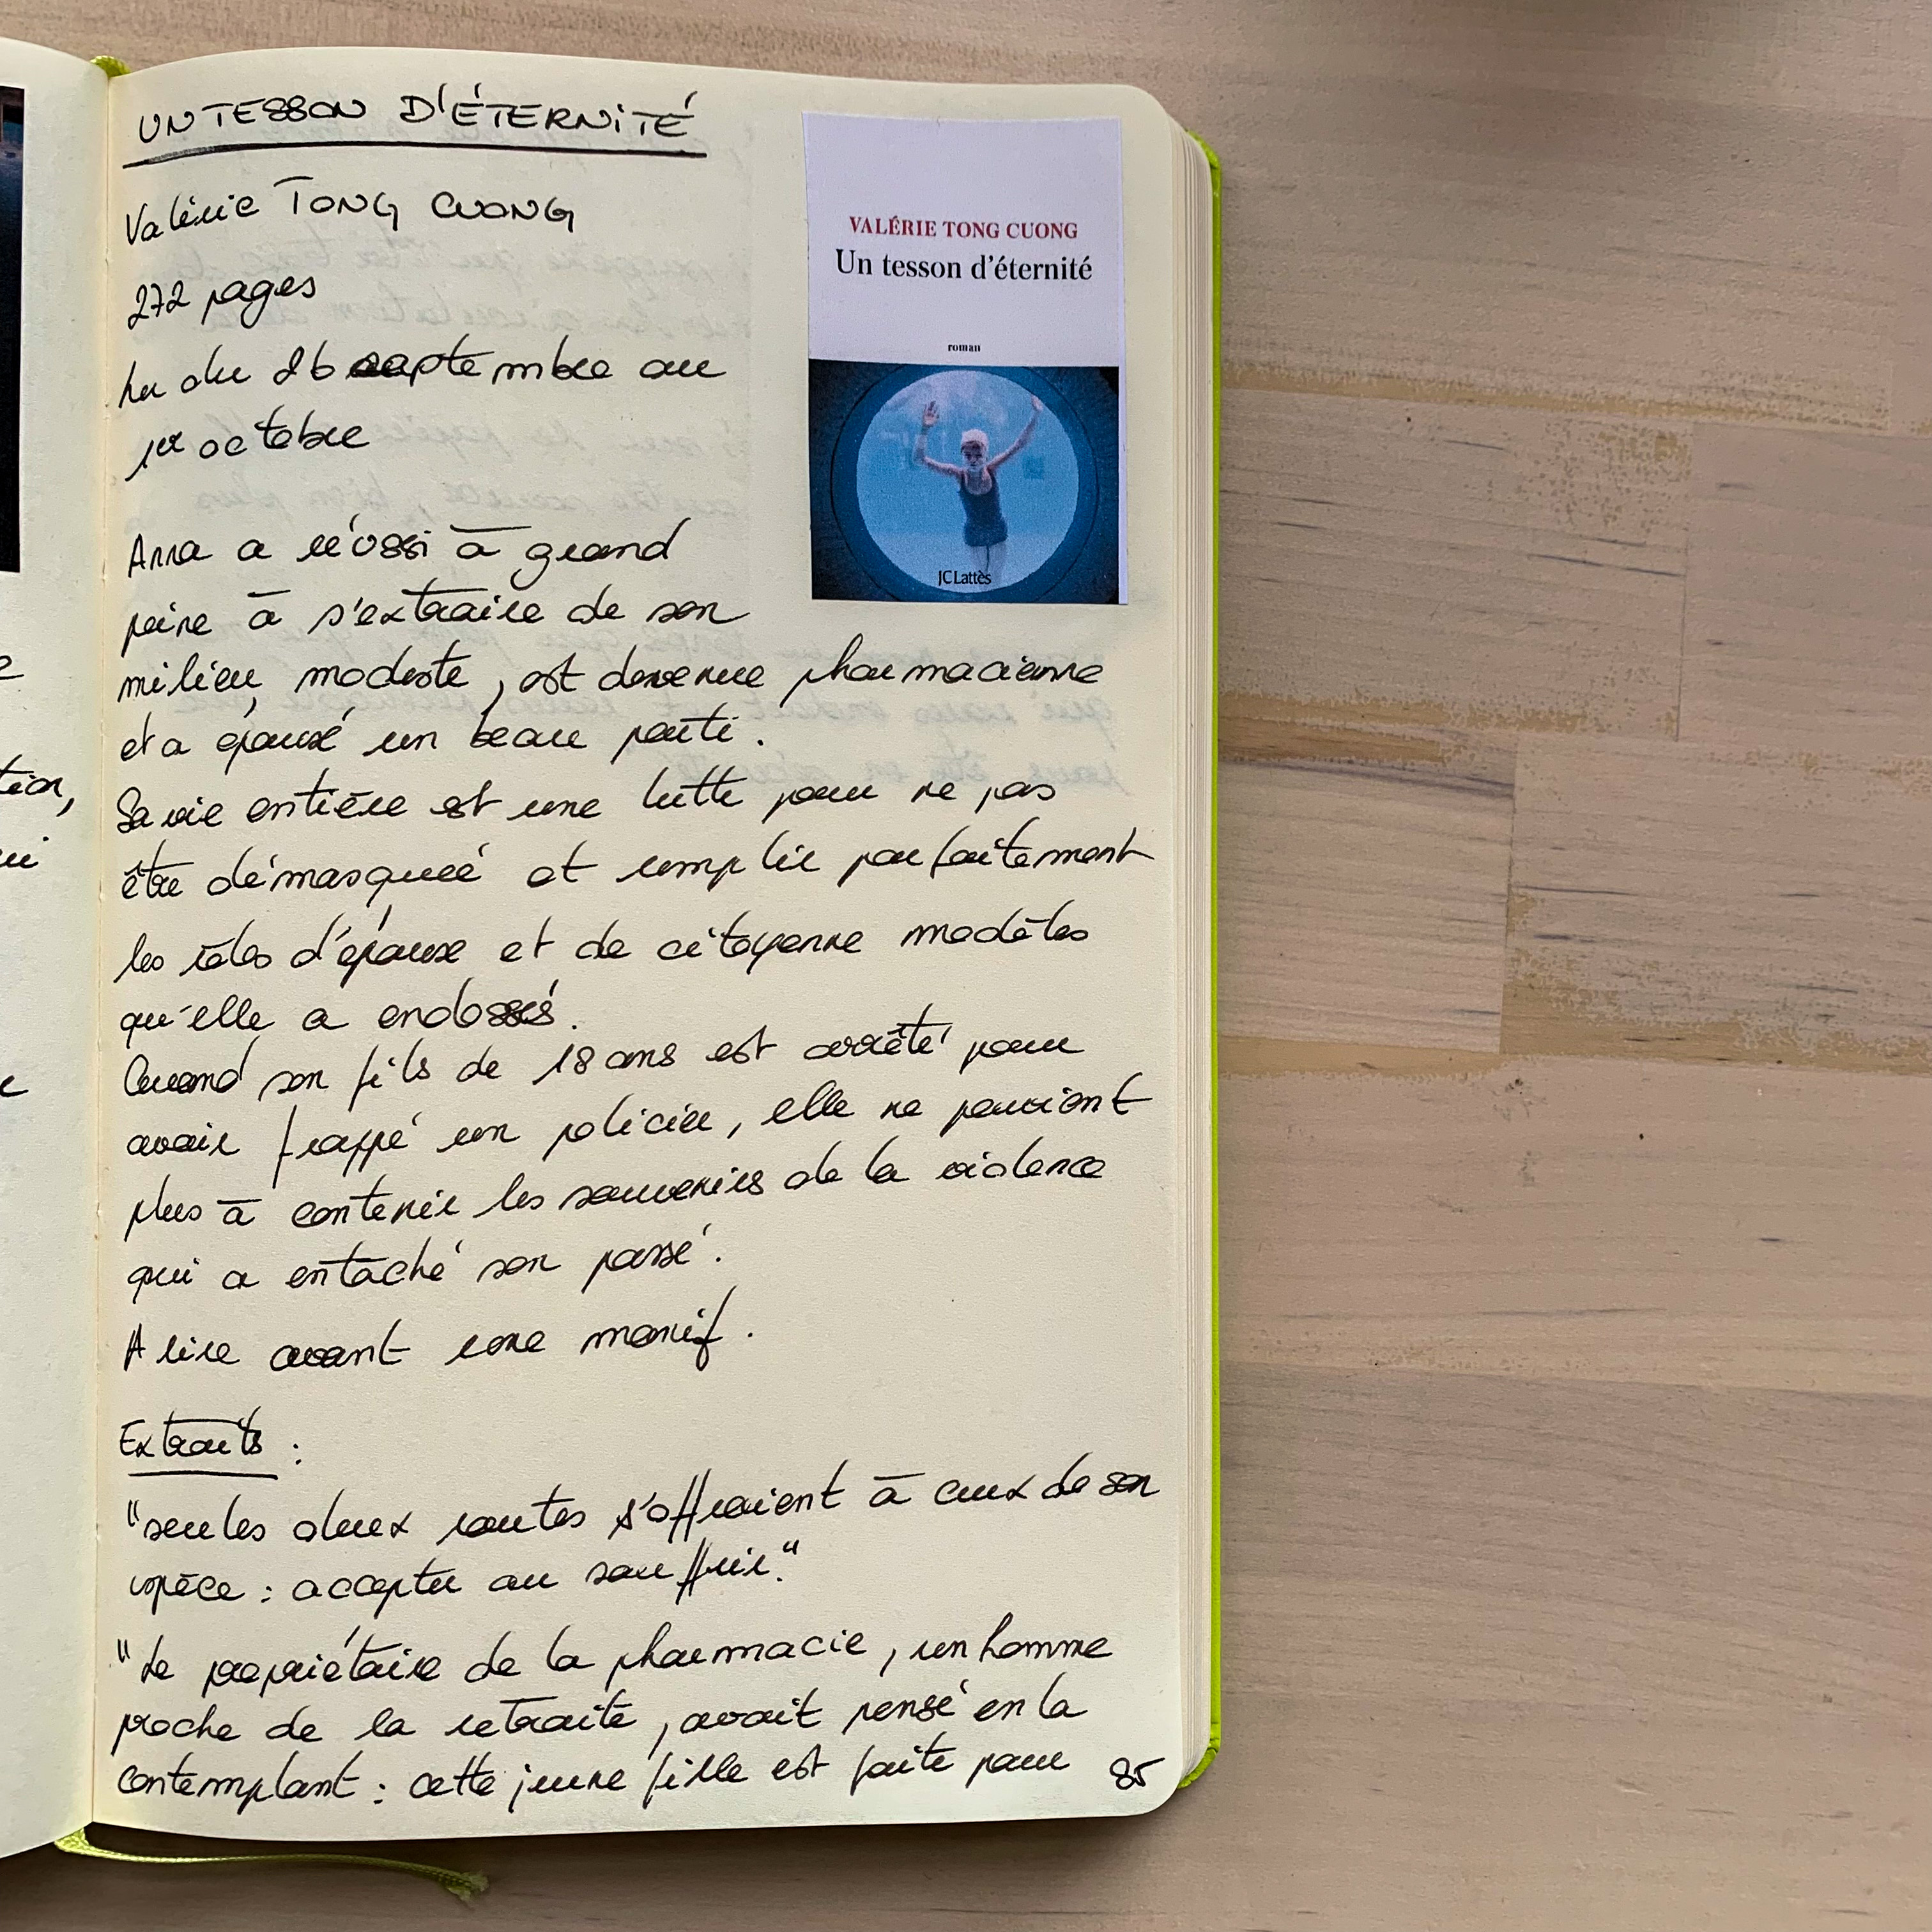 UN TESSON D'ÉTERNITÉ
Valérie TONG CUONG
272 pages
Lu du 26 septembre au
1er octobre
VALÉRIE TONG CUONG
Un tesson d'éternité
roman
JC Lattès
Anna a réussi à grand
peine à s'extraire de son
milieu modeste, est devenue pharmacienne
et a épousé un beau parti.
Sa vie entière est une lutte pour ne pas
être démasquée et remplir parfaitement
les rôles d'épouse et de citoyenne modèles
qu'elle a endossés.
Quand son fils de 18 ans est arrêté pour
avoir frappé un policier, elle ne parvient
plus à contenir les souvenirs de la violence
qui a entaché son passé.
A lire avant une manif.
Extraits :
"seules deux routes s'offraient à ceux de son
espèce : accepter ou souffrir."
"Le propriétaire de la pharmacie, un homme
proche de la retraite, avait pensé en la
contemplant : cette jeune fille est faite pour
85